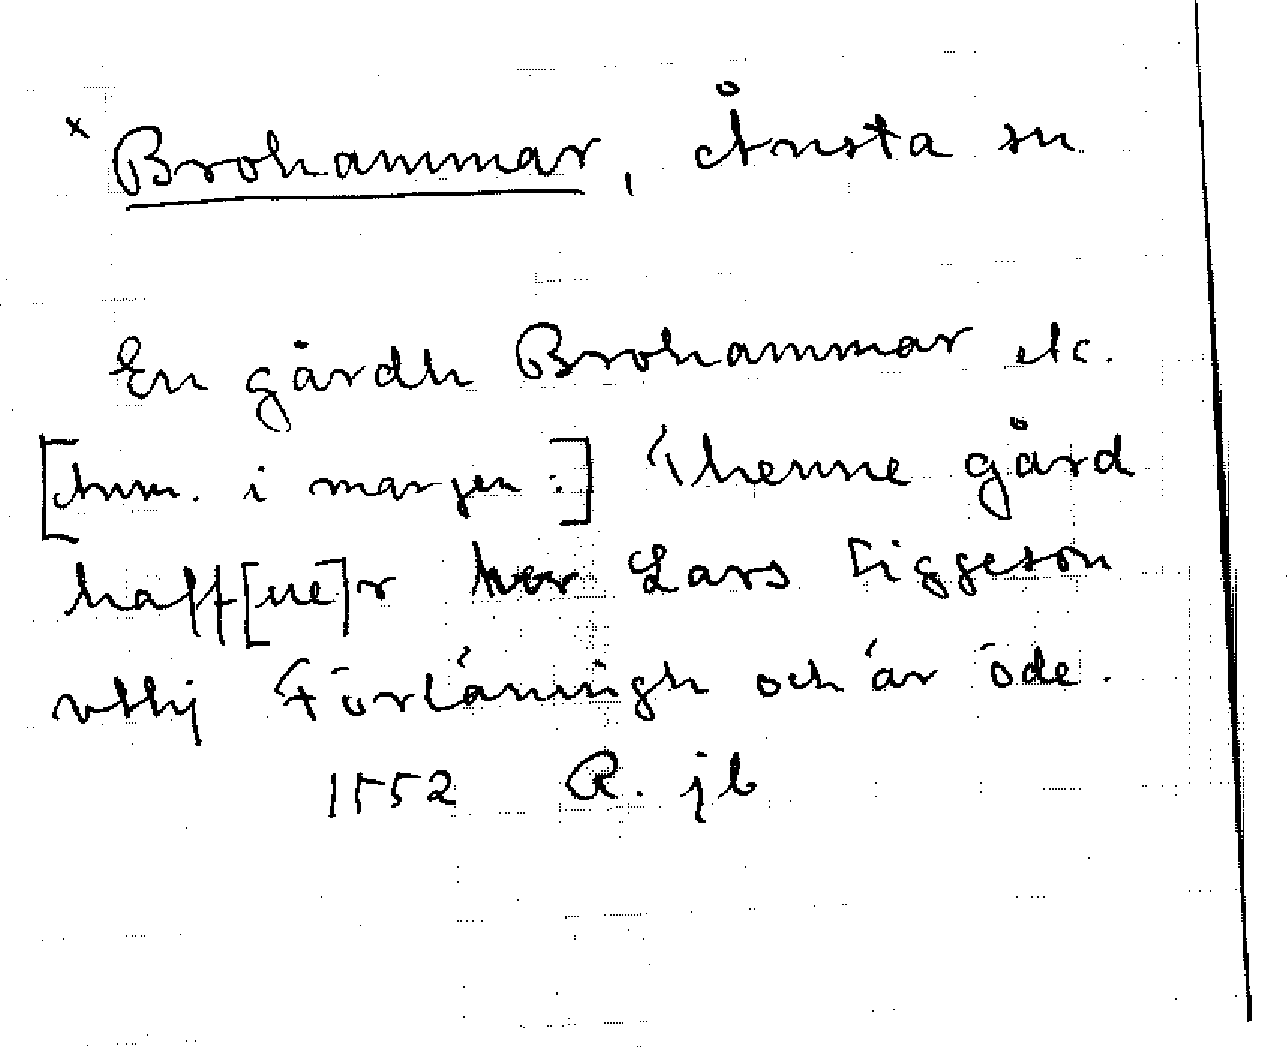 x Brohammar, Ånsta sn
En gårdh Brohammar etc.
[Anm. i margen:] Thenne gård
haff[ue]r her Lars Siggeson
vthj Förläningh och är öde.
1552 R. jb